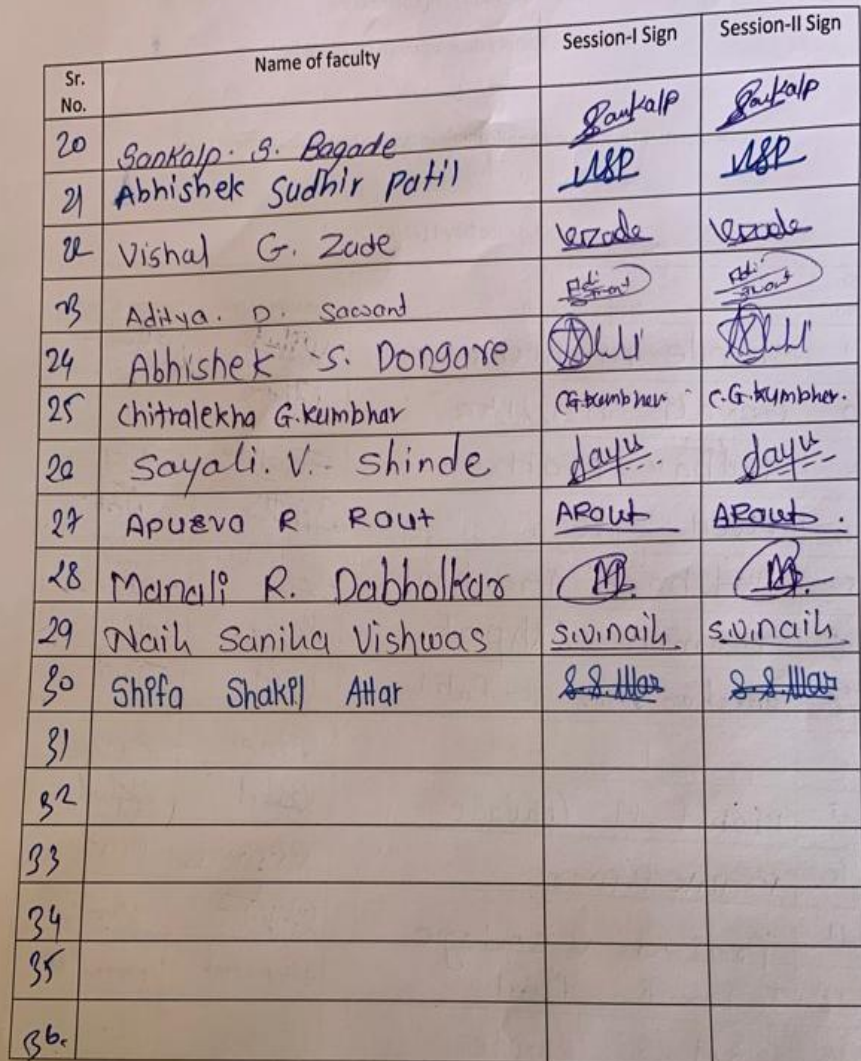 Sr. No. Name of faculty Session-I Sign Session-II Sign
20 Sankalp. S. Bagade Sankalp Sankalp
21 Abhishek Sudhir Patil ASP ASP
22 Vishal G. Zade VGZade
23 Aditya. D. Sawant
24 Abhishek S. Dongare
25 Chitralekha G.Kumbhar C.G.Kumbhar C.G.Kumbhar.
26 Sayali. V. Shinde Sayu Sayu
27 Apurva R Rout ARout ARout.
28 Manali R. Dabholkar
29 Naik Sanika Vishwas S.V.naik. S.V.naik.
30 Shifa Shakil Attar S.S.Attar S.S.Attar
31
32
33
34
35
36.